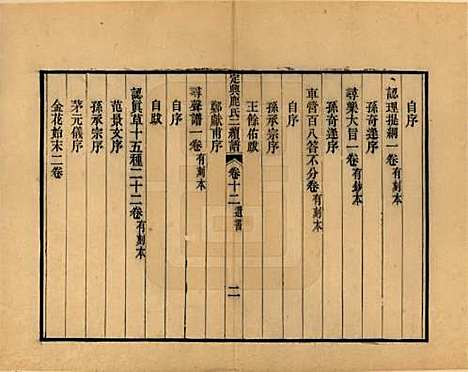 自序
認理提綱一卷有刻本
孫奇逢序
尋樂大旨一卷有鈔本
孫奇逢序
車營百八答不分卷有刻本
孫承宗序
王餘佑跋
定興鹿氏二續譜
卷十二
遺書
二
鄭獻甫序
尋聲譜一卷有刻本
自序
自跋
認真草十五種二十二卷有刻本
范景文序
孫承宗序
茅元儀序
金花始末二卷